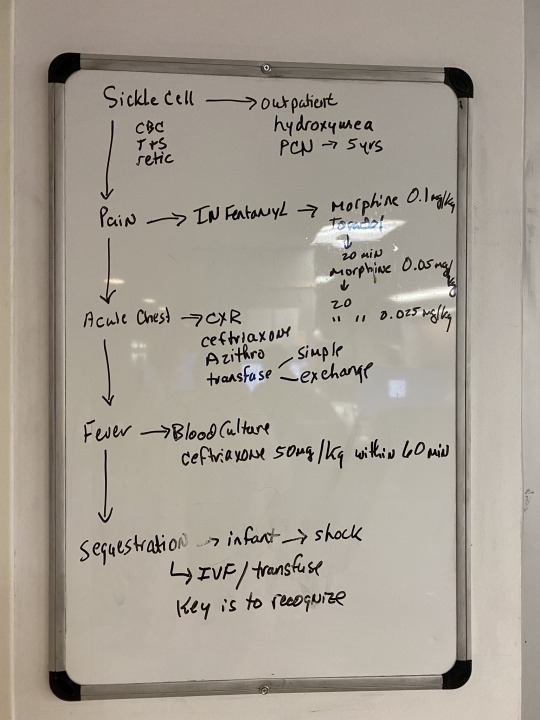 Sickle Cell → outpatient
CBC
T+S
retic
hydroxyurea
PCN → 5yrs
Pain → IN Fentanyl → Morphine 0.1mg/kg
Toradol
↓ 20 min
Morphine 0.05mg/kg
↓
20
" " 0.025mg/kg
Acute Chest → CXR
ceftriaxone
Azithro
transfuse simple
exchange
Fever → Blood Culture
ceftriaxone 50mg/kg within 60 min
Sequestration → infant → shock
↳ IVF/transfuse
Key is to recognize